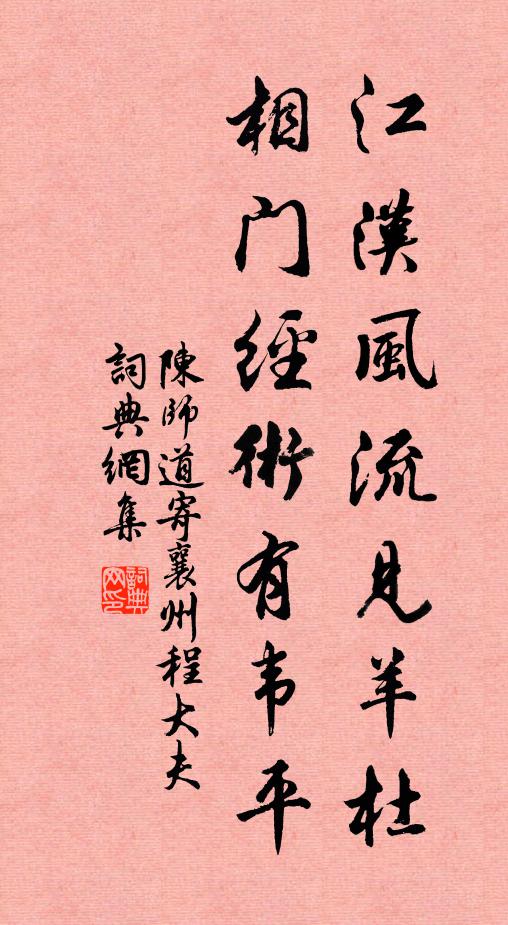 江漢風流見羊杜
相門經術有韦平
陳師道寄襄州程大夫
詞典網集
詞典网印